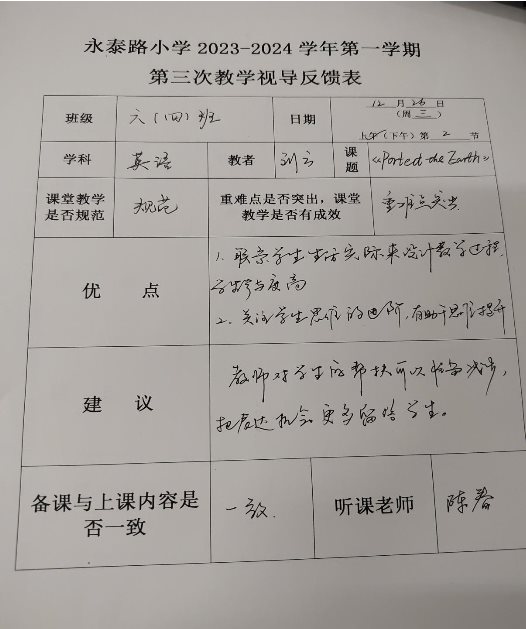 永泰路小学 2023-2024 学年第一学期
第三次教学视导反馈表
班级 六(四)班 日期 12 月 26 日
(周 三 )
上午(下午)第 2 节
学科 英语 教者 刘云 课题 《Portect the Earth》
课堂教学是否规范 规范 重难点是否突出，课堂教学是否有成效 重难点突出
优 点
1、联系学生生活实际来设计教学过程，
学生参与度高
2、关注学生思维的进阶，有助于思维提升
建 议
教师对学生的帮扶可以逐步减少，
把表达机会更多留给学生。
备课与上课内容是否一致 一致. 听课老师 陈春